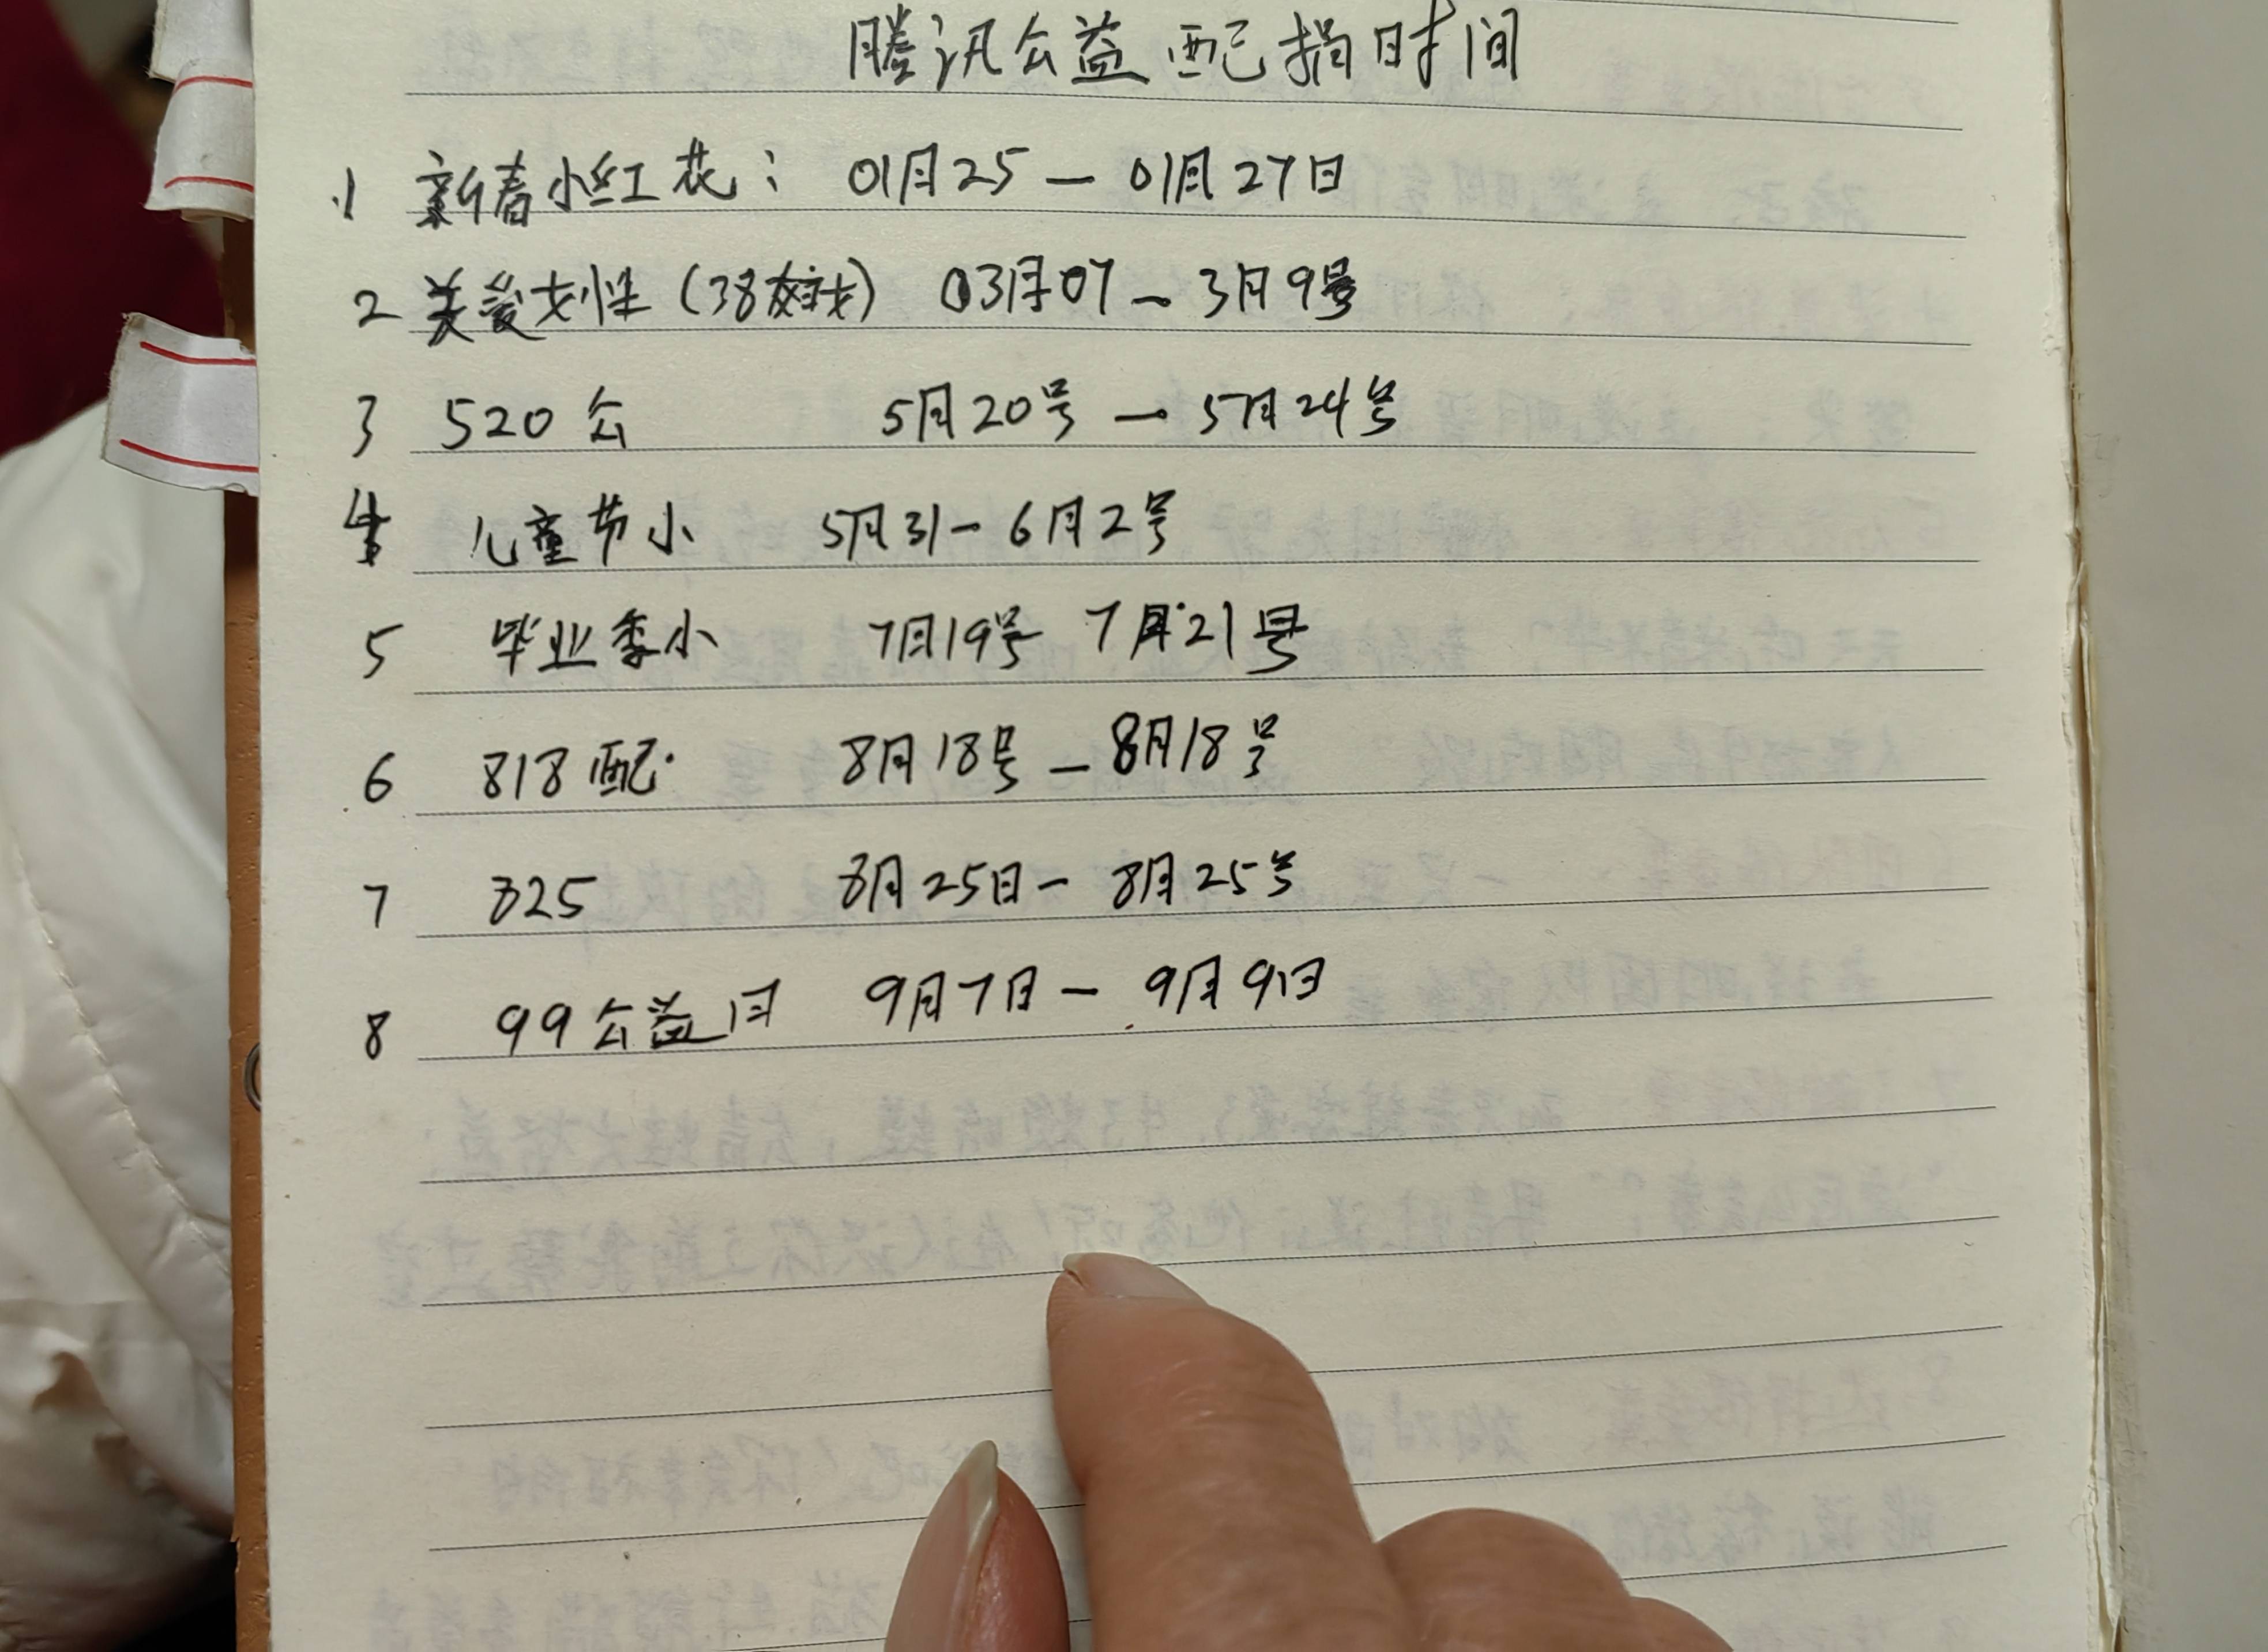 腾讯公益配捐时间
1 新春小红花: 01月25 — 01月27日
2 关爱女性 (38) 03月07 — 3月9号
3 520公 5月20号 — 5月24号
4 儿童节小 5月31 — 6月2号
5 毕业季小 7月19号 7月21号
6 818配 8月18号 — 8月18号
7 825 8月25日 — 8月25号
8 99公益日 9月7日 — 9月9日